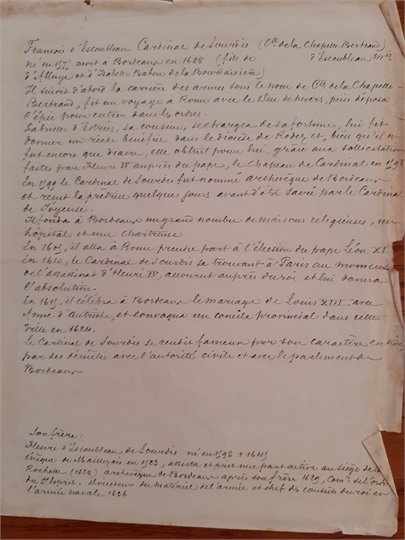 François d'Escoubleau Cardinal de Sourdis (Cte de la Chapelle Bertrand)
né en 157 mort à Bordeaux en 1628 (fils de d'Escoubleau
d'Alluye et d'Isabelle Babou de la Bourdaisière)
Il suivit d'abord la carrière des armes sous le nom de Cte de la Chapelle-
Bertrand, fit un voyage à Rome avec le Duc de Nevers, puis déposa
l'épée pour entrer dans les ordres.
Gabrielle d'Estrées, sa cousine, se chargea de sa fortune, lui fit
donner un riche bénéfice dans le diocèse de Rodez et, bien qu'il ne
fut encore que diacre, elle obtint pour lui grâce aux sollicitations
faites par Henri IV auprès du pape, le Chapeau de Cardinal en 1598
En 1599 le Cardinal de Sourdis fut nommé archevêque de Bordeaux
et reçut la prêtrise quelques jours avant d'être sacré par le Cardinal
de Joyeuse.
Il fonda à Bordeaux un grand nombre de maisons religieuses, un
hôpital et une chartreuse.
En 1605, il alla à Rome prendre part à l'élection du pape Léon XI
En 1610, le Cardinal de Sourdis se trouvant à Paris au moment
de l'assassinat d'Henri IV, accourut auprès du roi et lui donna
l'absolution.
En 1615, il célébra à Bordeaux le mariage de Louis XIII avec
Anne d'Autriche, et convoqua un concile provincial dans cette
ville en 1624.
Le Cardinal de Sourdis se rendit fameux par son caractère
par ses démêlés avec l'autorité civile et avec le parlement de
Bordeaux
Son frère:
Henri d'Escoubleau de Sourdis né en 1593 + 1645
évêque de Maillezais en 1623, assista et prit une part active au siège de la
Rochelle (1628) archevêque de Bordeaux après son frère 1629, Comr de l'ordre
du St Esprit. Directeur du matériel de l'armée et chef des conseils du roi en
l'armée navale 1636